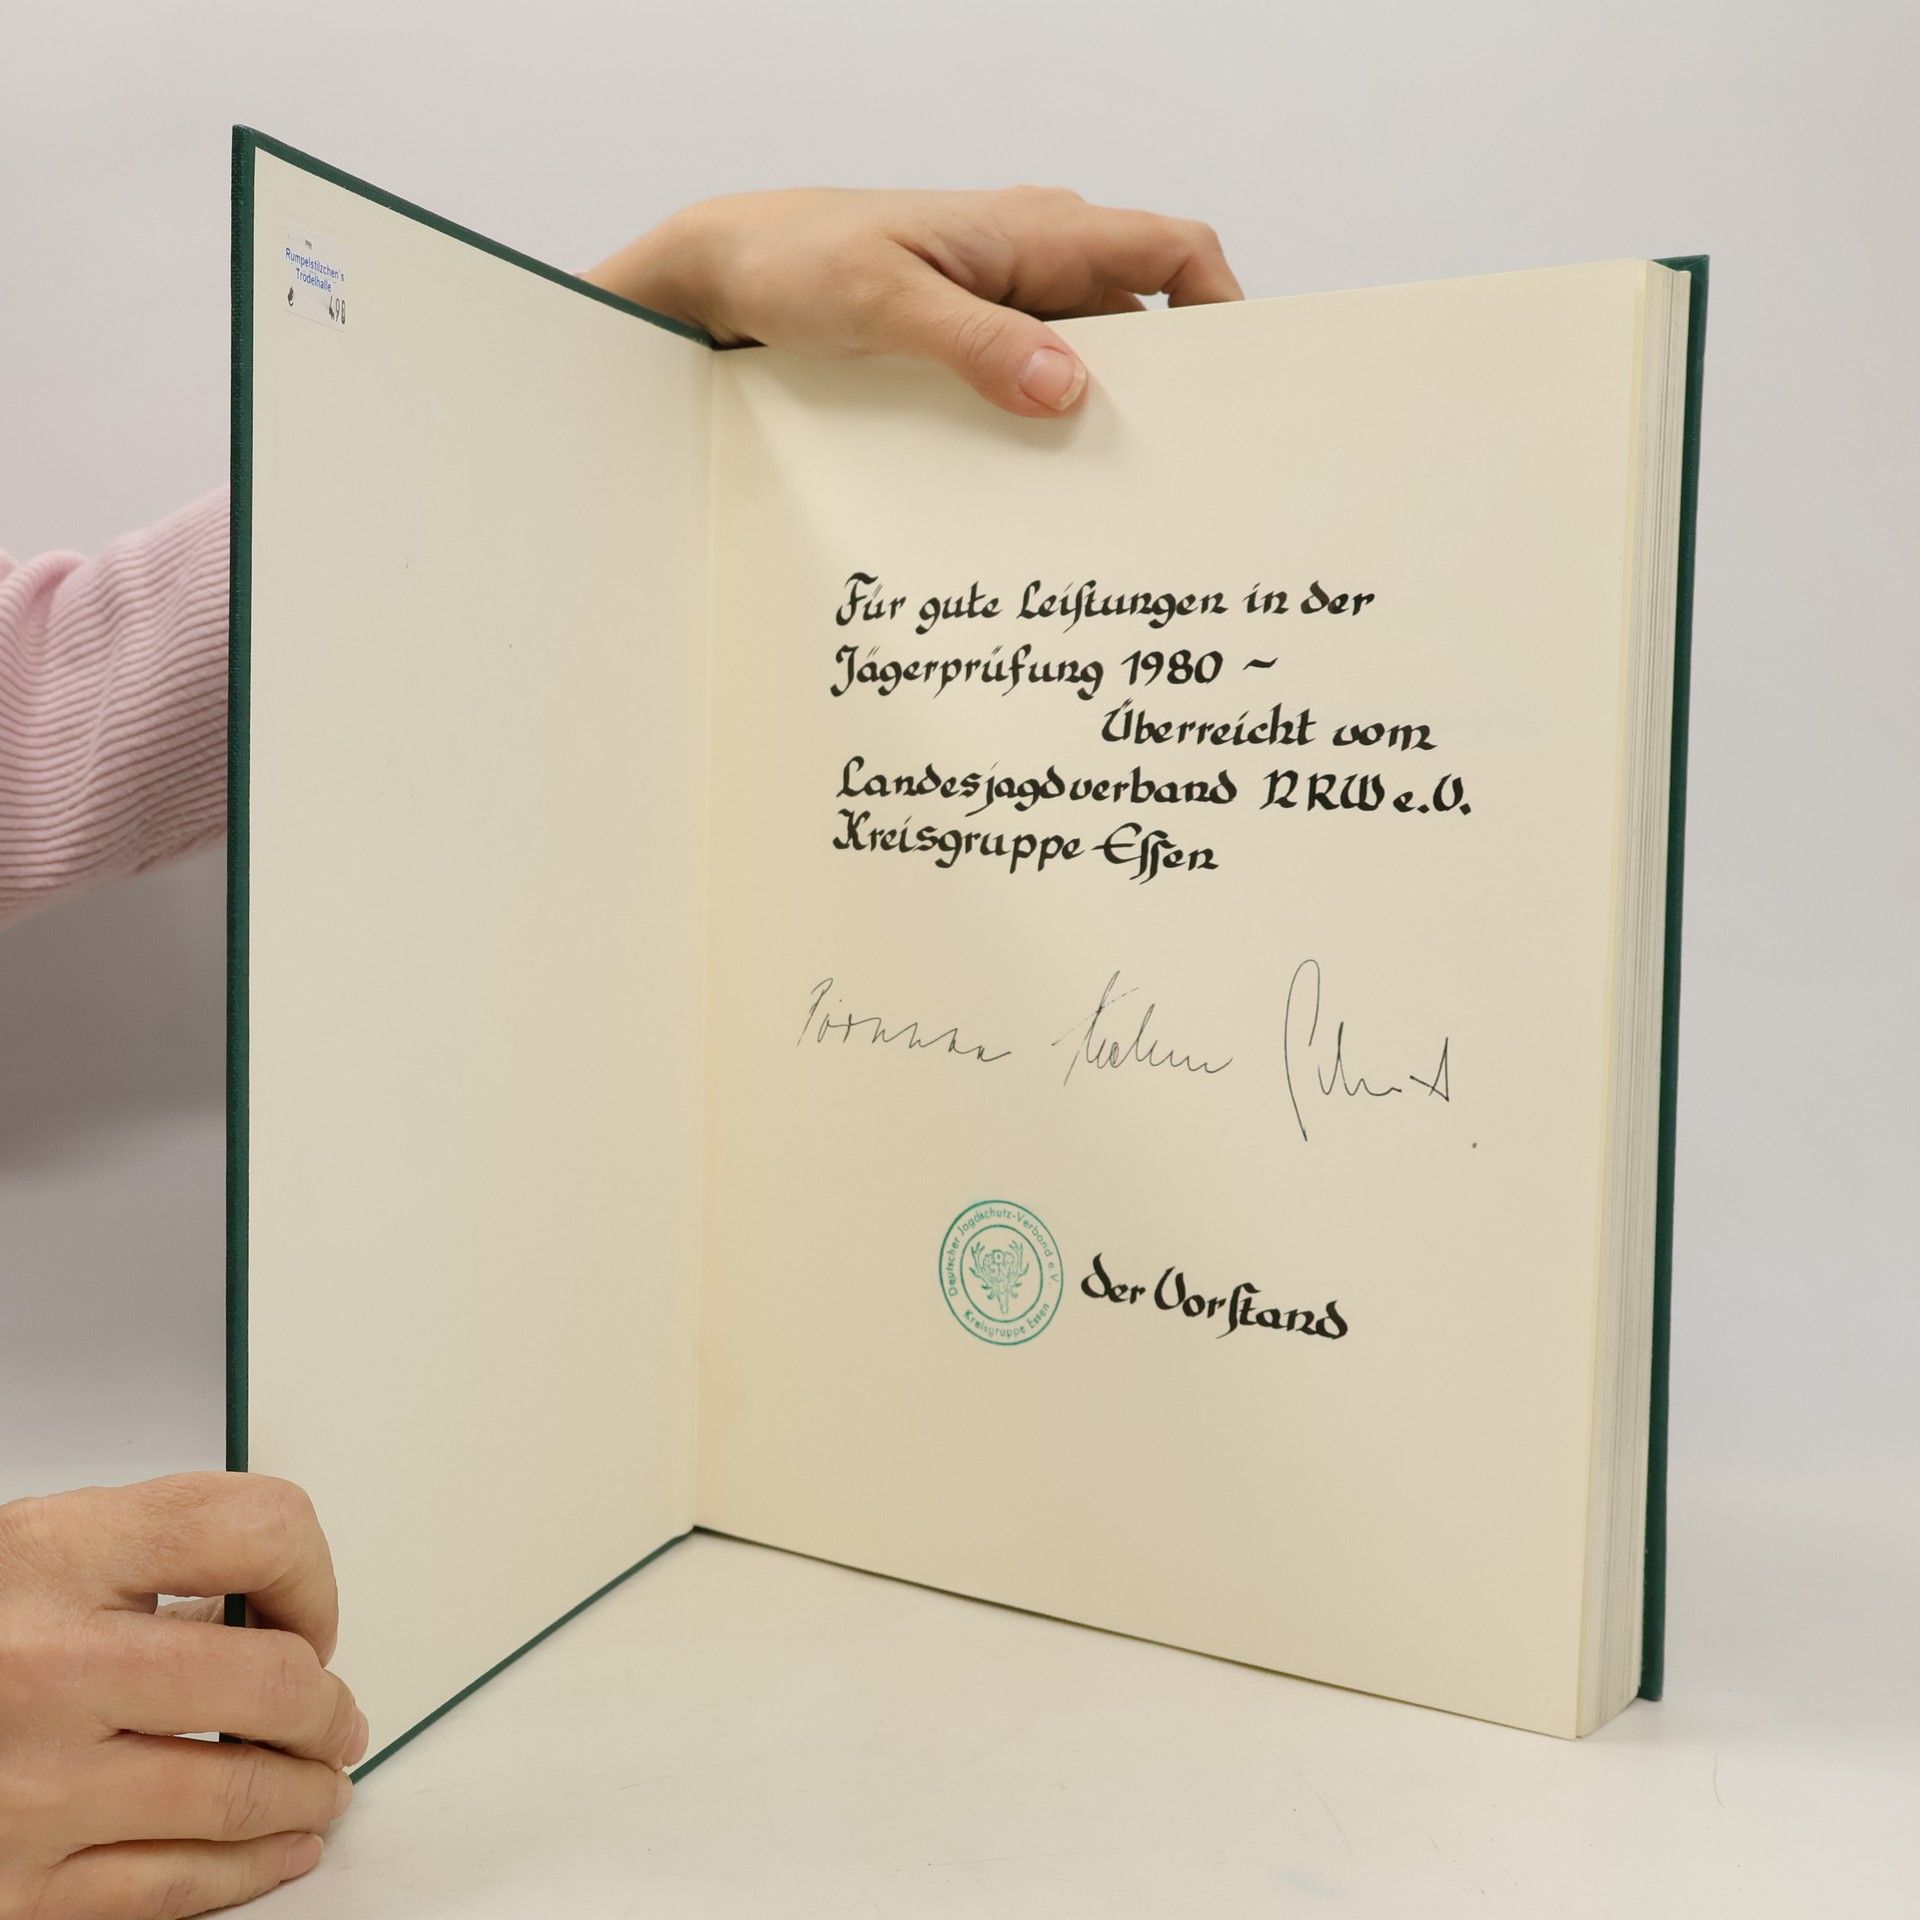 Rumpelstilzchen's
Trödelhalle
490
Für gute Leistungen in der
Jägerprüfung 1980 ~
Überreicht vom
Landesjagdverband NRW e.V.
Kreisgruppe Essen
Deutscher Jagdschutz-Verband e.V.
Kreisgruppe Essen
der Vorstand